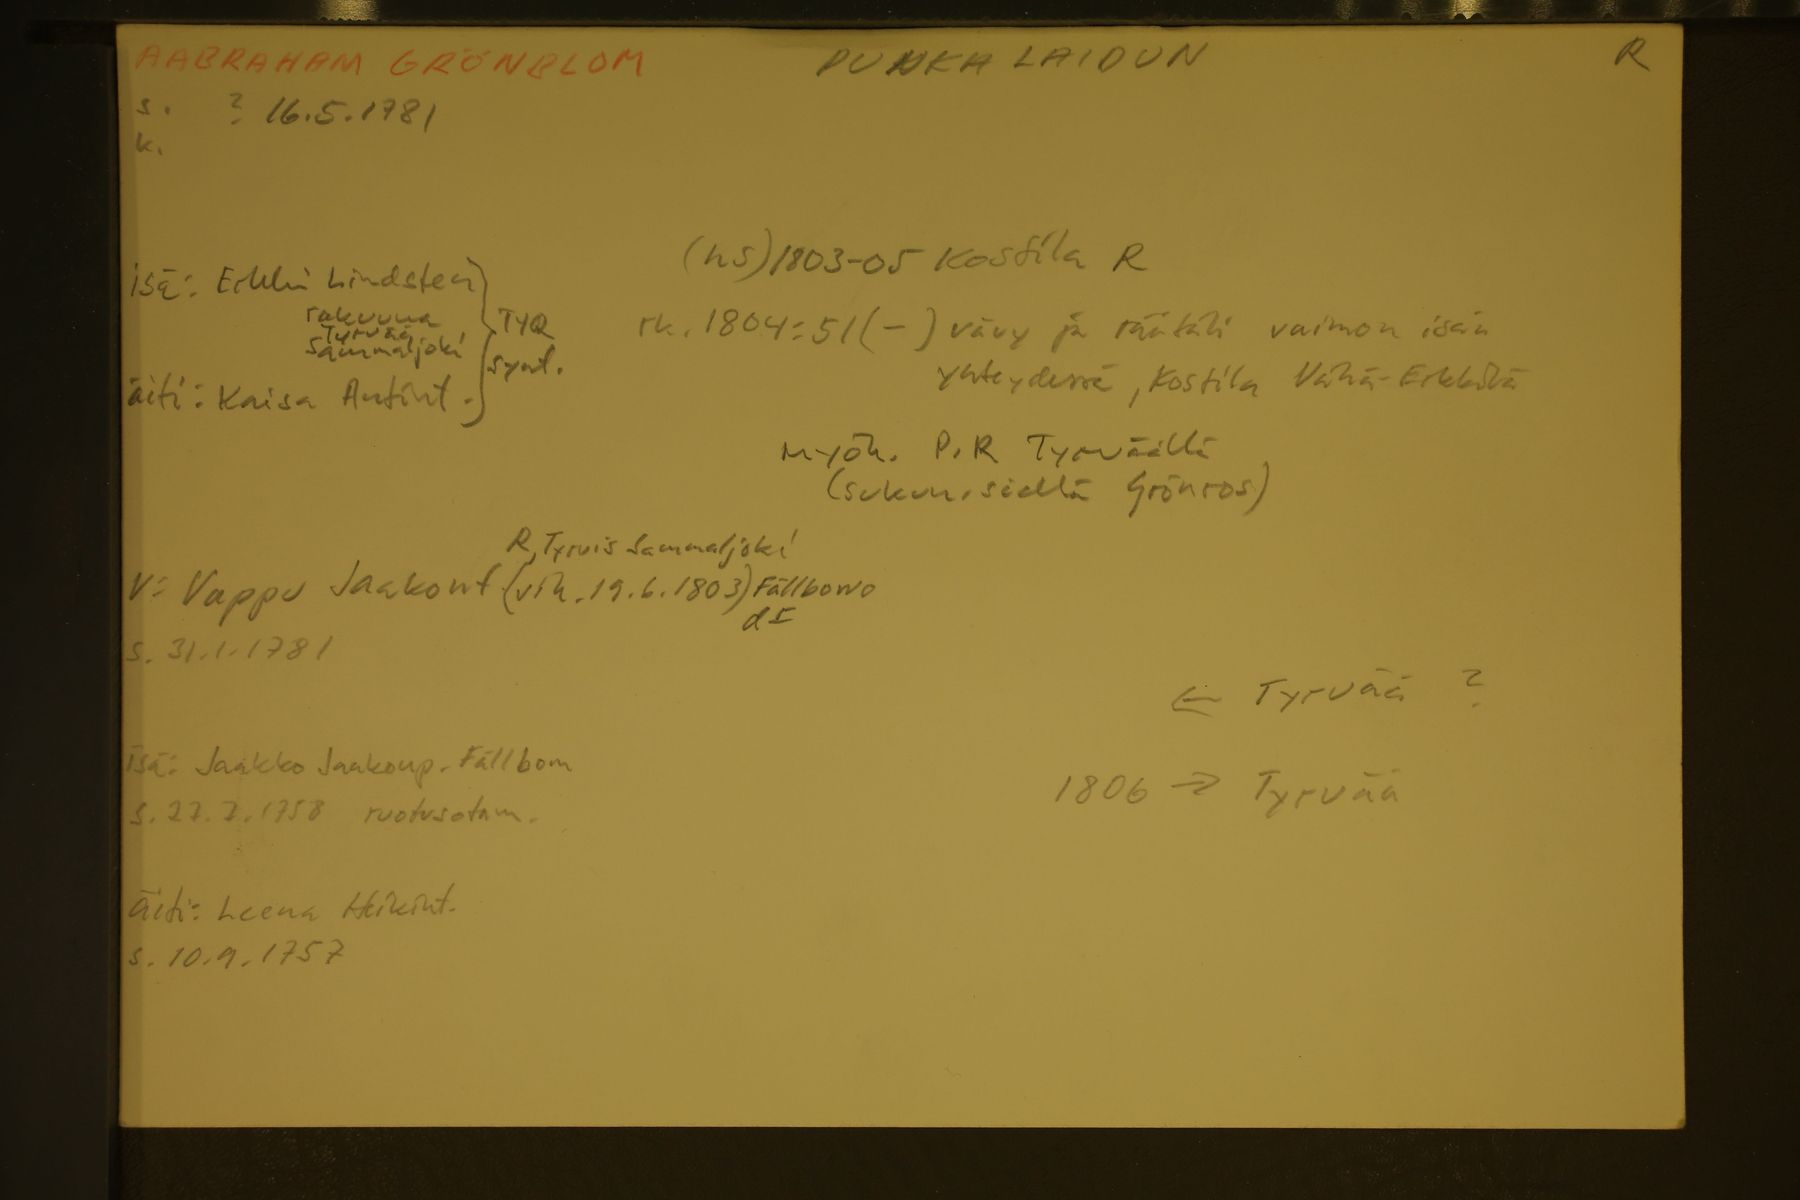 AABRAHAM GRÖNBLOM PUNKALAIDUN R
s. ? 16.5.1781
k.
(hs) 1803-05 Kostila R
isä: Erkki Lindsten
rakuuna
Tyrvää
Sammaljoki
äiti: Kaisa Antint.
TYQ
synt.
rk. 1804:51 (-) vävy ja räätäli vaimon isän
yhteydessä, Kostila Vähä-Erkkilä
myöh. P.R Tyrväällä
(sukun. siellä Grönros)
R, Tyrvis Sammaljoki
V: Vappu Jaakont (vih. 19.6.1803) Fällbom
s. 31.1.1781
← Tyrvää ?
isä: Jaakko Jaakonp. Fällbom
s. 22.7.1758 ruotusotam.
1806 → Tyrvää
äiti: Leena Heikint.
s. 10.9.1757